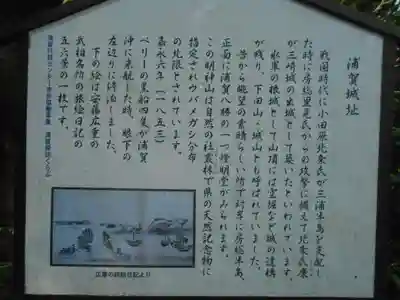 浦賀城址
戦国時代に小田原北条氏が三浦半島を支配し
た時に房総里見氏からの攻撃に備えて北条氏康
が三崎城の出城として築いたといわれています。
水軍の根城として山頂には空堀など城の遺構
が残り、下田山・城山とも呼ばれていました。
昔から眺望の素晴らしい所で対岸に房総半島、
正面に浦賀八勝の一つ燈明堂がみられます。
この明神山は自然の社叢林で県の天然記念物に
指定されウバメガシ分布
の北限とされています。
嘉永六年(一八五三)
ペリーの黒船四隻が浦賀
沖に来航した時、眼下の
左辺りに停泊しました。
下の絵は安藤広重の
武相名所の旅絵日記の
五六景の一枚です。
浦賀行政センター市民協働事業・浦賀探訪くらぶ
広重の旅絵日記より